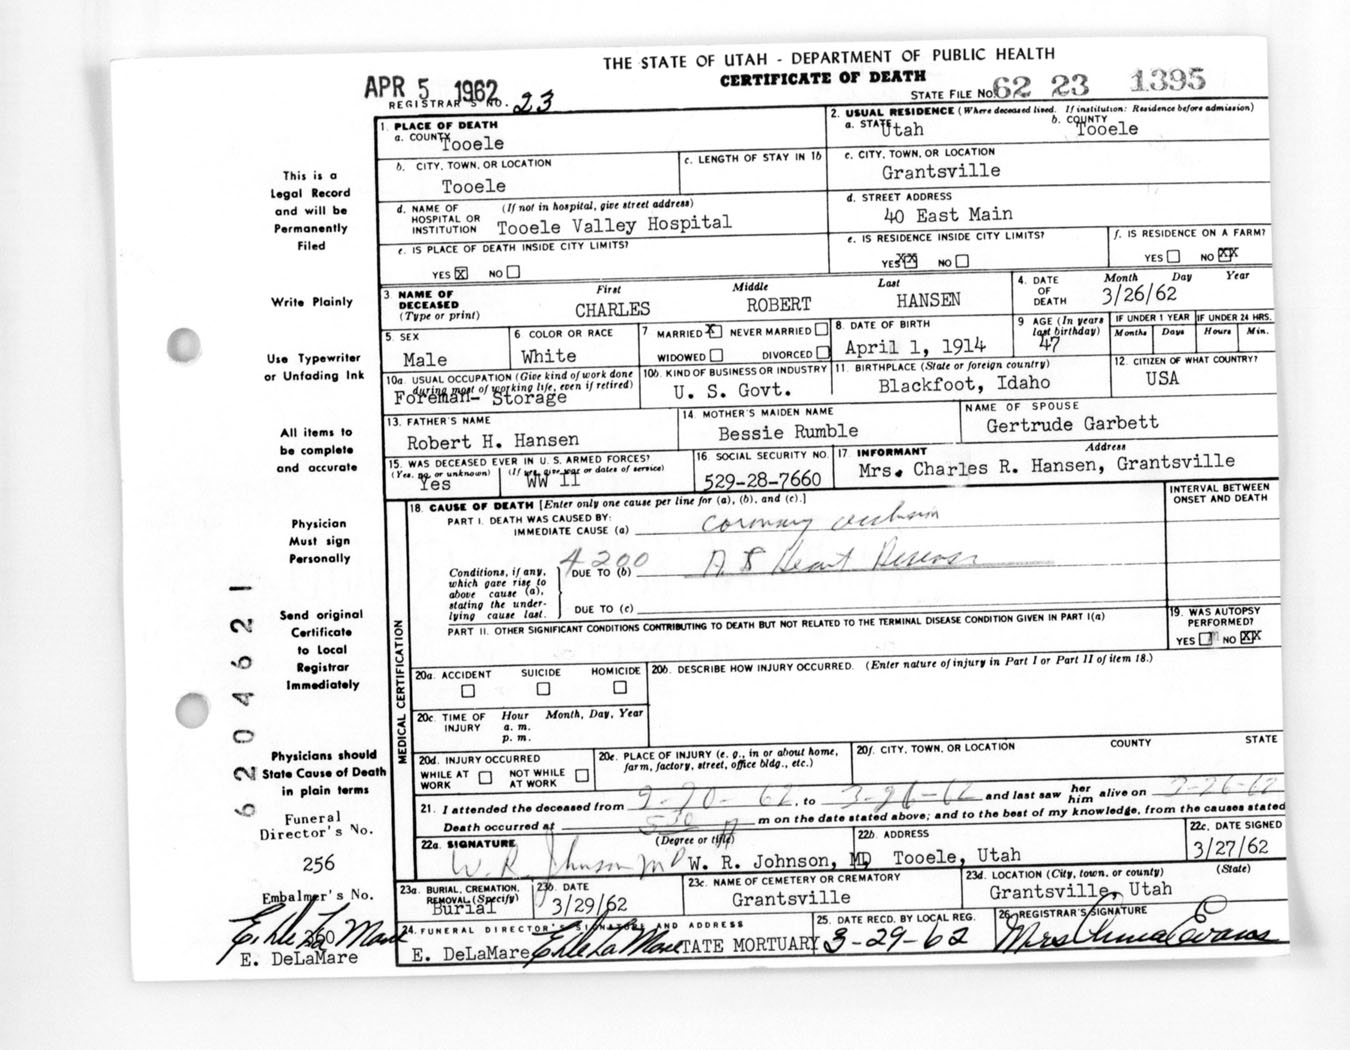 THE STATE OF UTAH - DEPARTMENT OF PUBLIC HEALTH
CERTIFICATE OF DEATH
APR 5 1962
REGISTRAR'S NO. 23
STATE FILE NO. 62 23 1395
This is a
Legal Record
and will be
Permanently
Filed
Write Plainly
Use Typewriter
or Unfading Ink
All items to
be complete
and accurate
Physician
Must sign
Personally
Send original
Certificate
to Local
Registrar
Immediately
Physicians should
State Cause of Death
in plain terms
Funeral
Director's No.
256
Embalmer's No.
360
E. DeLaMare
E. DeLaMare
6204621
1. PLACE OF DEATH
a. COUNTY
Tooele
b. CITY, TOWN, OR LOCATION
Tooele
c. LENGTH OF STAY IN 1b
d. NAME OF HOSPITAL OR INSTITUTION (If not in hospital, give street address)
Tooele Valley Hospital
e. IS PLACE OF DEATH INSIDE CITY LIMITS?
YES X NO
2. USUAL RESIDENCE (Where deceased lived. If institution: Residence before admission)
a. STATE Utah b. COUNTY Tooele
c. CITY, TOWN, OR LOCATION
Grantsville
d. STREET ADDRESS
40 East Main
e. IS RESIDENCE INSIDE CITY LIMITS?
YES XX NO
f. IS RESIDENCE ON A FARM?
YES NO XX
3. NAME OF DECEASED (Type or print)
First Middle Last
CHARLES ROBERT HANSEN
4. DATE OF DEATH Month Day Year
3/26/62
5. SEX
Male
6 COLOR OR RACE
White
7 MARRIED X NEVER MARRIED
WIDOWED DIVORCED
8. DATE OF BIRTH
April 1, 1914
9 AGE (In years last birthday)
47
IF UNDER 1 YEAR IF UNDER 24 HRS.
Months Days Hours Min.
10a. USUAL OCCUPATION (Give kind of work done during most of working life, even if retired)
Foreman- Storage
10b. KIND OF BUSINESS OR INDUSTRY
U. S. Govt.
11. BIRTHPLACE (State or foreign country)
Blackfoot, Idaho
12. CITIZEN OF WHAT COUNTRY?
USA
13. FATHER'S NAME
Robert H. Hansen
14. MOTHER'S MAIDEN NAME
Bessie Rumble
NAME OF SPOUSE
Gertrude Garbett
15. WAS DECEASED EVER IN U. S. ARMED FORCES?
(Yes, no, or unknown) (If yes, give war or dates of service)
Yes WW II
16. SOCIAL SECURITY NO.
529-28-7660
17. INFORMANT Address
Mrs. Charles R. Hansen, Grantsville
MEDICAL CERTIFICATION
18. CAUSE OF DEATH [Enter only one cause per line for (a), (b), and (c).]
INTERVAL BETWEEN ONSET AND DEATH
PART I. DEATH WAS CAUSED BY:
IMMEDIATE CAUSE (a) coronary occlusion
4200
Conditions, if any, which gave rise to above cause (a), stating the underlying cause last.
DUE TO (b) A S Heart Disease
DUE TO (c)
PART II. OTHER SIGNIFICANT CONDITIONS CONTRIBUTING TO DEATH BUT NOT RELATED TO THE TERMINAL DISEASE CONDITION GIVEN IN PART I(a)
19. WAS AUTOPSY PERFORMED?
YES NO XX
20a. ACCIDENT SUICIDE HOMICIDE
20b. DESCRIBE HOW INJURY OCCURRED. (Enter nature of injury in Part I or Part II of item 18.)
20c. TIME OF INJURY Hour Month, Day, Year
a. m.
p. m.
20d. INJURY OCCURRED
WHILE AT WORK NOT WHILE AT WORK
20e. PLACE OF INJURY (e. g., in or about home, farm, factory, street, office bldg., etc.)
20f. CITY, TOWN, OR LOCATION COUNTY STATE
21. I attended the deceased from 9-20-62, to 3-26-62 and last saw her him alive on 3-26-62
Death occurred at 530 A m on the date stated above; and to the best of my knowledge, from the causes stated
22a. SIGNATURE (Degree or title)
W. R. Johnson MD W. R. Johnson, MD
22b. ADDRESS
Tooele, Utah
22c. DATE SIGNED
3/27/62
23a. BURIAL, CREMATION, REMOVAL (Specify)
Burial
23b. DATE
3/29/62
23c. NAME OF CEMETERY OR CREMATORY
Grantsville
23d. LOCATION (City, town, or county) (State)
Grantsville, Utah
24. FUNERAL DIRECTOR'S SIGNATURE AND ADDRESS
E. DeLaMare E. DeLaMare TATE MORTUARY
25. DATE RECD. BY LOCAL REG.
3-29-62
26. REGISTRAR'S SIGNATURE
Mrs Evans